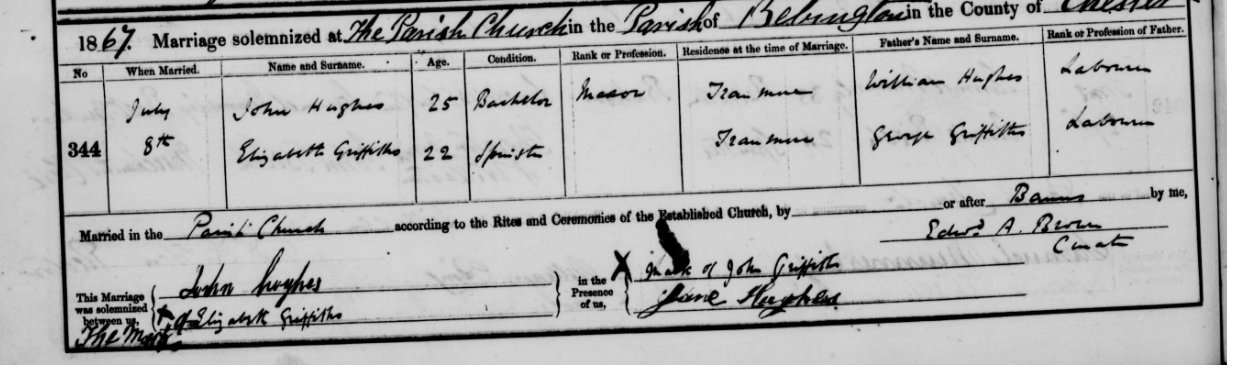 1867. Marriage solemnized at The Parish Church in the Parish of Bebington in the County of Chester
No When Married. Name and Surname. Age. Condition. Rank or Profession. Residence at the time of Marriage. Father's Name and Surname. Rank or Profession of Father.
July John Hughes 25 Bachelor Mason Tranmere William Hughes Labourer
344 8th Elizabeth Griffiths 22 Spinster Tranmere George Griffiths Labourer
Married in the Parish Church according to the Rites and Ceremonies of the Established Church, by or after Banns by me,
Edwd A. Brown
Curate
This Marriage was solemnized between us, John Hughes
The Mark X of Elizabeth Griffiths
in the Presence of us, X Mark of John Griffiths
Jane Hughes